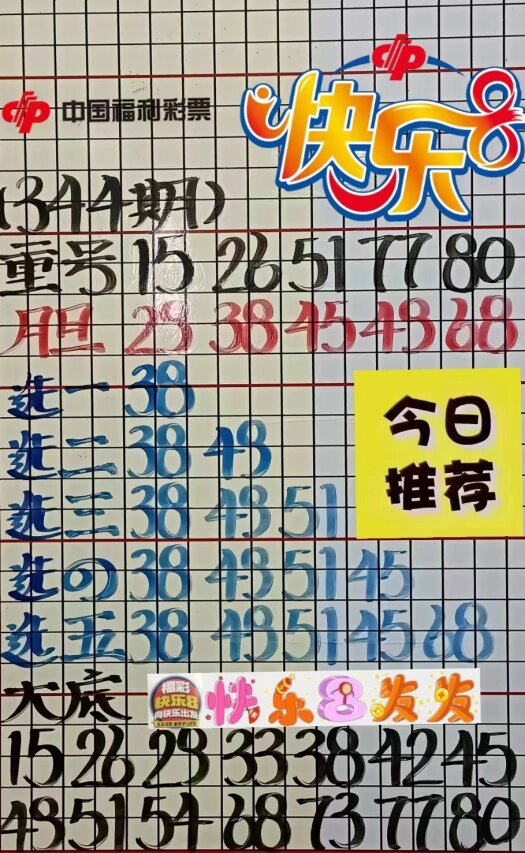 快乐8
中国福利彩票
(344期)
重号 15 26 51 77 80
胆 29 38 45 49 68
选一 38
今日
选二 38 49
推荐
选三 38 49 51
选の 38 49 51 45
选五 38 49 51 45 68
大底 福彩 快乐8 向快乐出发 快乐8发发
15 26 29 33 38 42 45
49 51 54 68 73 77 80